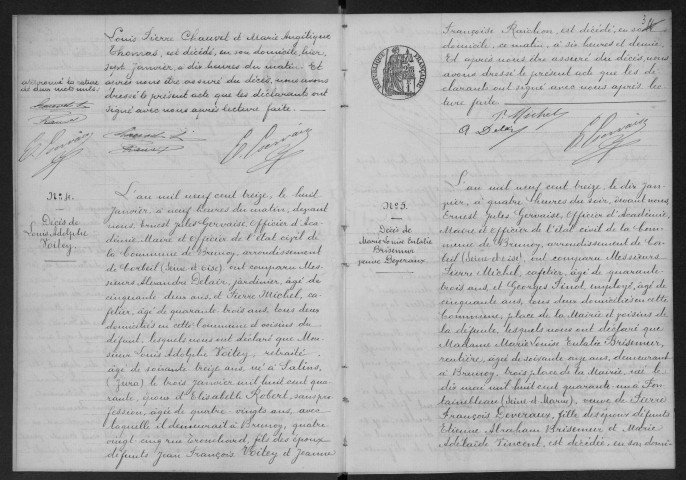 Louis Pierre Chauvel et Marie Angélique
Thomas, est décédé, en son domicile, hier,
sept janvier, à dix heures du matin. Et
après nous être assuré du décès, nous avons
dressé le présent acte que les déclarants ont
signé avec nous après lecture faite.
de deux mots nuls.
E. Gervaise
E. Gervaise
N° 4.
Décès de
Louis Adolphe
Voitey
L'an mil neuf cent treize, le huit
janvier, à neuf heures du matin, devant
nous, Ernest Jules Gervaise, Officier d'Aca-
démie, Maire et officier de l'état civil de
la Commune de Brunoy, arrondissement
de Corbeil (Seine-et-oise), ont comparu Mes-
sieurs Alexandre Delair, jardinier, âgé de
cinquante deux ans, et Pierre Michel, ca-
fetier, âgé de quarante-trois ans, tous deux
domiciliés en cette Commune et voisins du
défunt, lesquels nous ont déclaré que Mon-
sieur Louis Adolphe Voitey, retraité,
âgé de soixante treize ans, né à Salins,
(Jura) le trois janvier mil huit cent qua-
rante, époux d'Elisabeth Robert, sans pro-
fession, âgée de quatre-vingts ans, avec
laquelle il demeurait à Brunoy, quatre
vingt cinq rue, fils des époux
défunts Jean François Voitey et Jeanne
Françoise Raichon, est décédé, en son
domicile, ce matin, à six heures et demie.
Et après nous être assuré du décès, nous
avons dressé le présent acte que les dé-
clarants ont signé avec nous après lec-
ture faite.
REPUBLIQUE FRANÇAISE
P. Michel
A Delair
E. Gervaise
N° 5.
Décès de
Marie Louise Eulalie
Brisemeur
veuve Deveraux
L'an mil neuf cent treize, le dix jan-
vier, à quatre heures du soir, devant nous
Ernest Jules Gervaise, Officier d'Académie,
Maire et officier de l'état civil de la Com-
mune de Brunoy, arrondissement de Cor-
beil (Seine-et-oise), ont comparu Messieurs
Pierre Michel, cafetier, âgé de quarante-
trois ans, et Georges Pinot, employé, âgé de
cinquante ans, tous deux domiciliés en cette
Commune, place de la Mairie et voisins de
la défunte, lesquels nous ont déclaré que
Madame Marie Louise Eulalie Brisemeur,
rentière, âgée de soixante onze ans, demeurant
à Brunoy, trois place de la Mairie, née le
dix mai mil huit cent quarante-un à Fon-
tainebleau (Seine et Marne), veuve de Pierre
François Deveraux, fille des époux défunts
Etienne Abraham Brisemeur et Marie
Adélaïde Vincent, est décédée, en son domi-